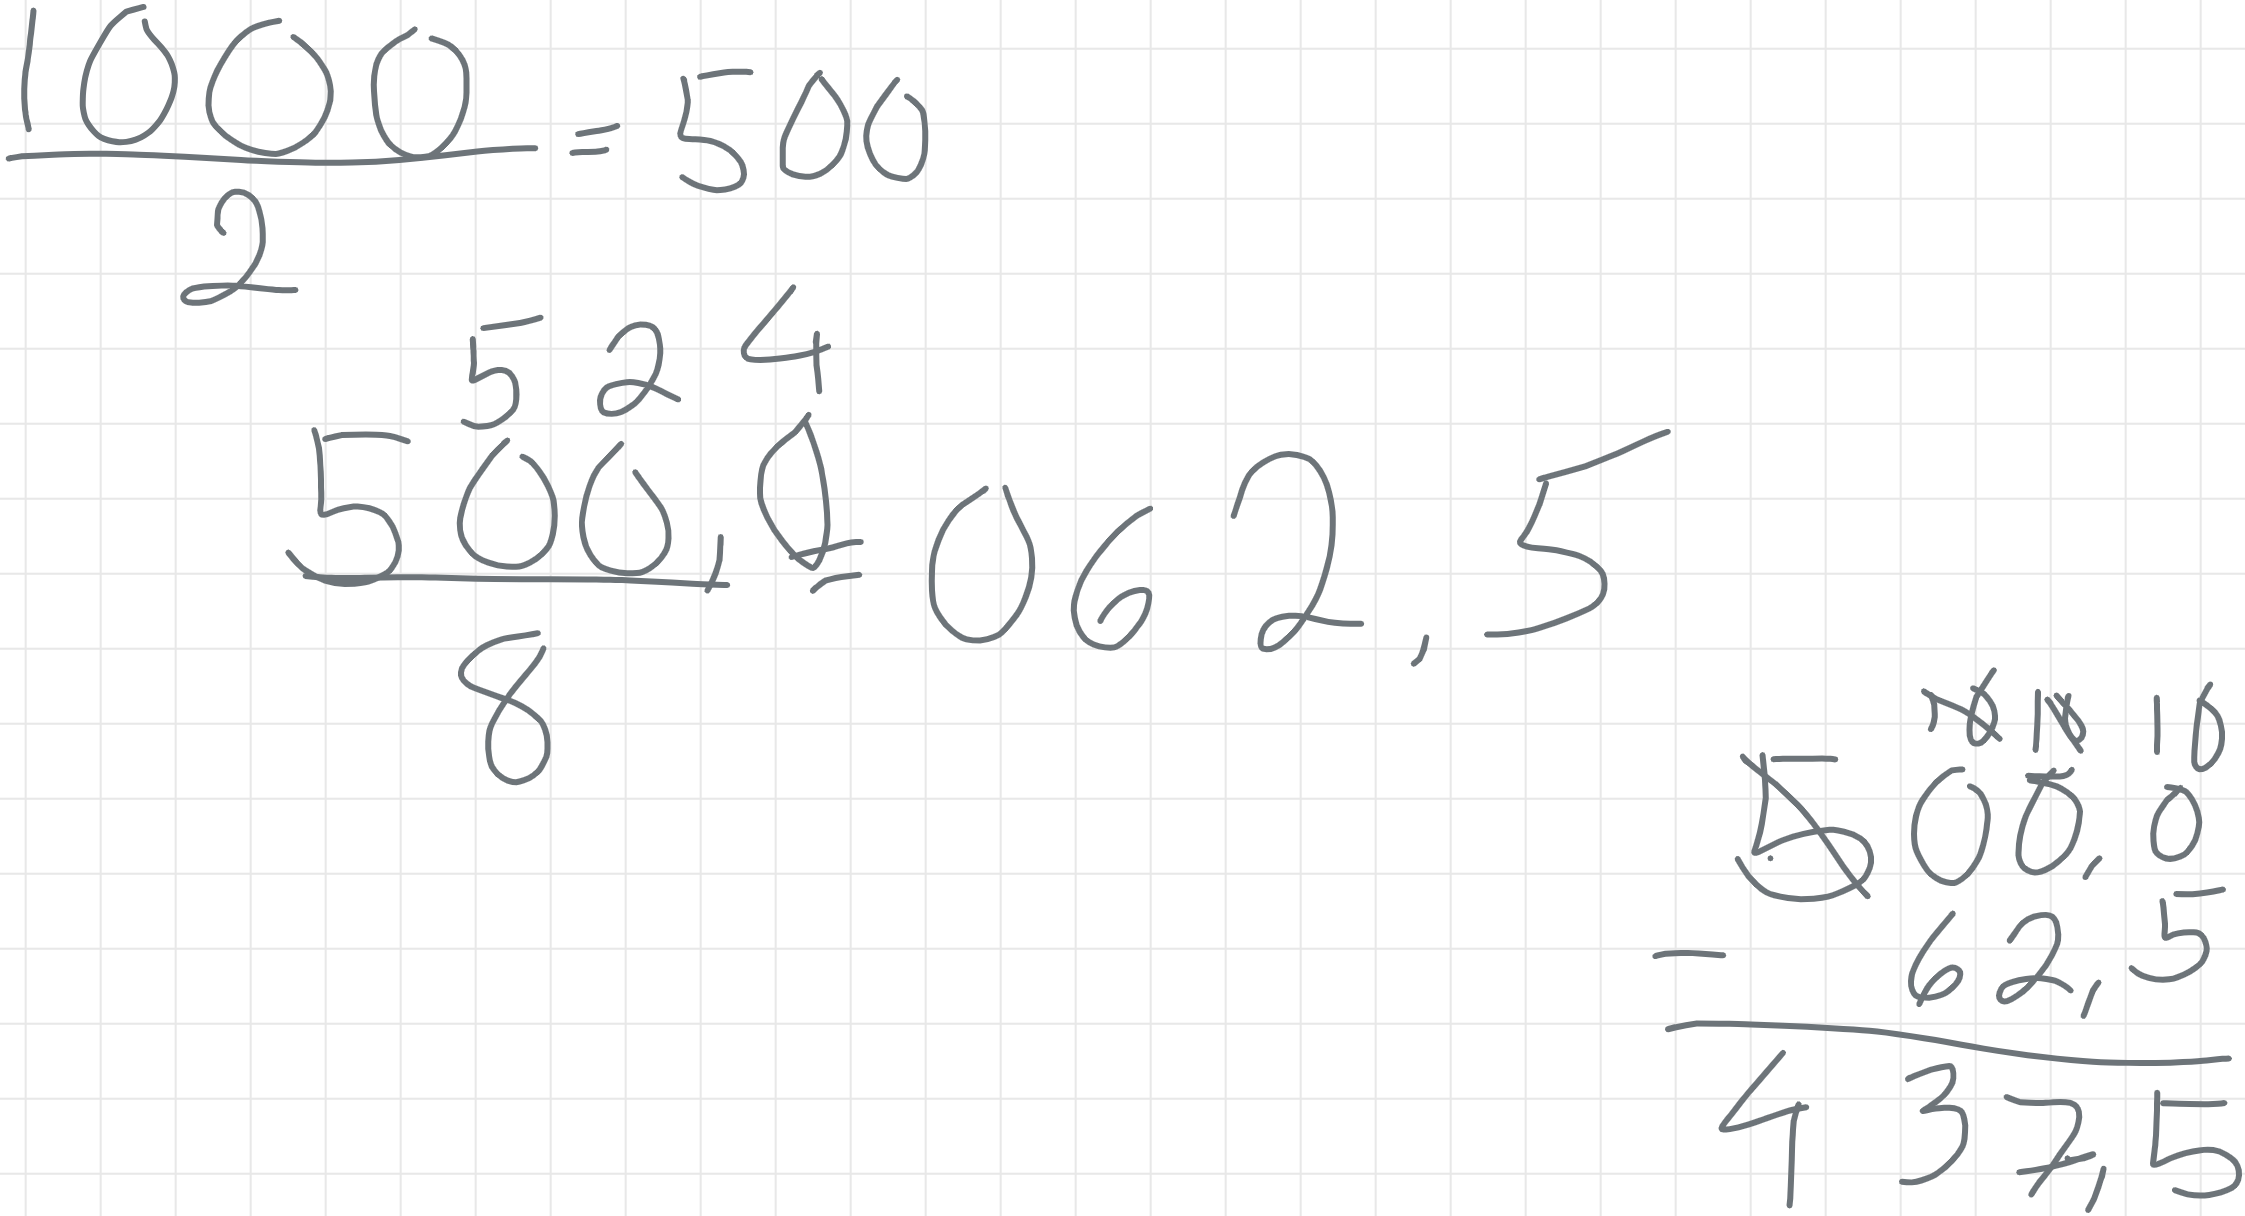 1000 = 500
2
5 2 4
500,0 = 062,5
8
10 10 10
500,0
- 62,5
437,5